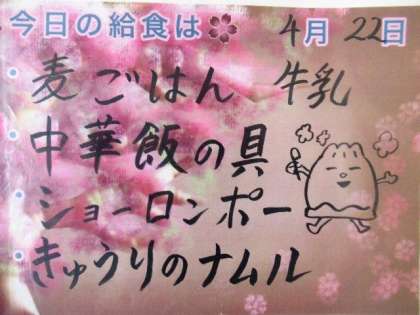 今日の給食は 4月22日
・麦ごはん 牛乳
・中華飯の具
・ショーロンポー
・きゅうりのナムル